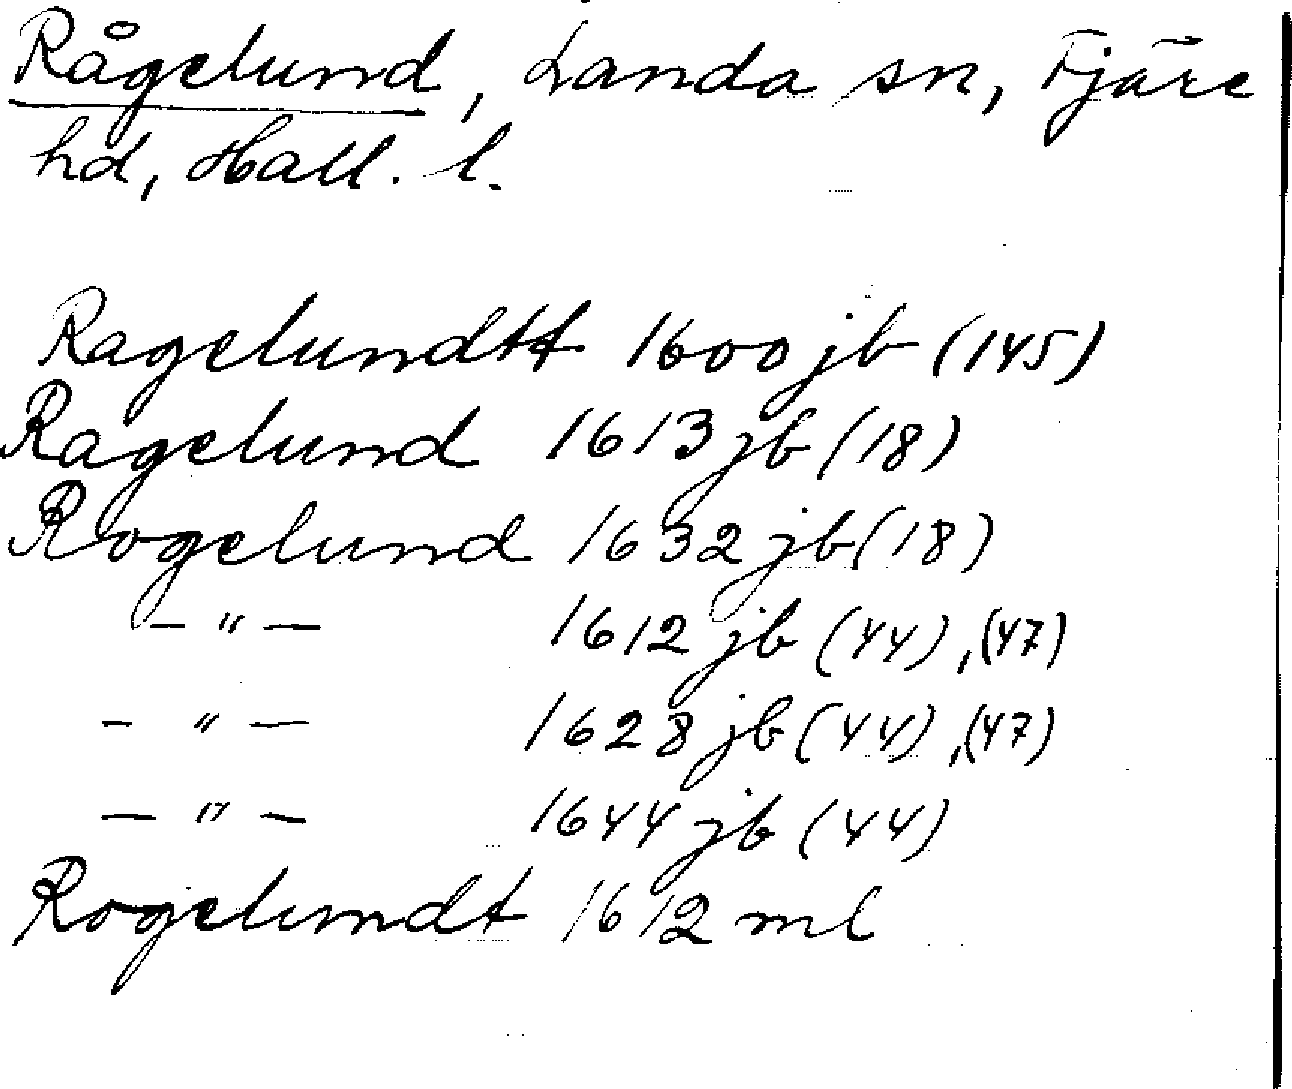 Rågelund, Landa sn, Fjäre
hd, Hall. l.
Ragelundtt 1600 jb (145)
Ragelund 1613 jb (18)
Rogelund 1632 jb (18)
– " – 1612 jb (44), (47)
– " – 1628 jb (44), (47)
– " – 1644 jb (44)
Rogelundt 1612 ml